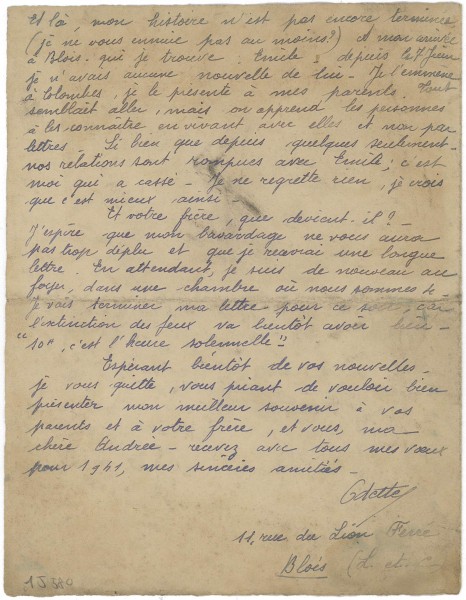 Et là, mon histoire n'est pas encore terminée
(je ne vous ennuie pas au moins?) A mon arrivée
à Blois qui je trouve : Emile, depuis le 7 Juin
je n'avais aucune nouvelle de lui - Je l'emmène
à Colombes, je le présente à mes parents. Tout
semblait aller, mais on apprend les personnes
à les connaître en vivant avec elles et non par
lettres - Si bien que depuis quelques seulement -
nos relations sont rompues avec Emile; c'est
moi qui a cassé - Je ne regrette rien, je crois
que c'est mieux ainsi -
Et votre frère, que devient-il? -
J'espère que mon bavardage ne vous aura
pas trop déplu et que je recevrai une longue
lettre. En attendant, je suis de nouveau au
foyer, dans une chambre où nous sommes
Je vais terminer ma lettre pour ce soir, car
l'extinction des feux va bientôt avoir lieu -
"10", c'est l'heure solennelle" -
Espérant bientôt de vos nouvelles -
je vous quitte, vous priant de vouloir bien
présenter mon meilleur souvenir à vos
parents et à votre frère, et vous, ma
chère Andrée - recevez avec tous mes vœux
pour 1941, mes sincères amitiés -
Odette
11, rue du Lion Ferré
Blois (L. et
1J380